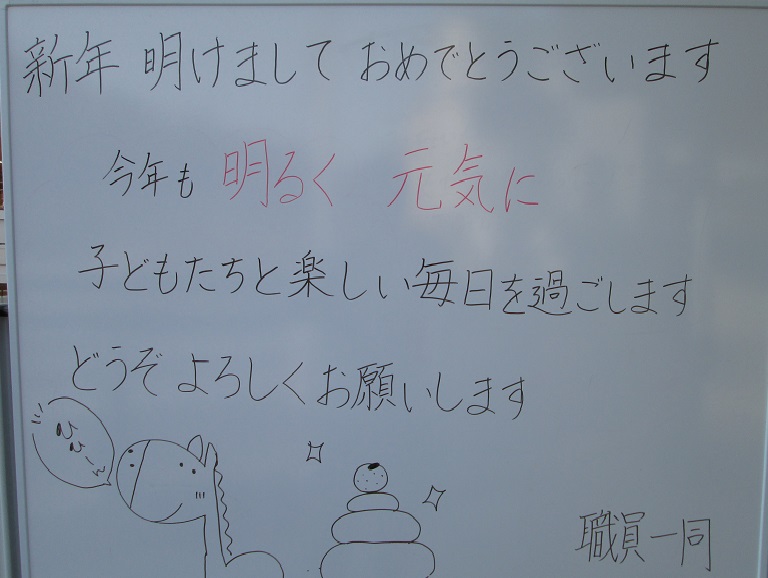 新年 明けまして おめでとうございます
今年も 明るく 元気に
子どもたちと楽しい毎日を過ごします
どうぞ よろしくお願いします
ひひーん
職員一同